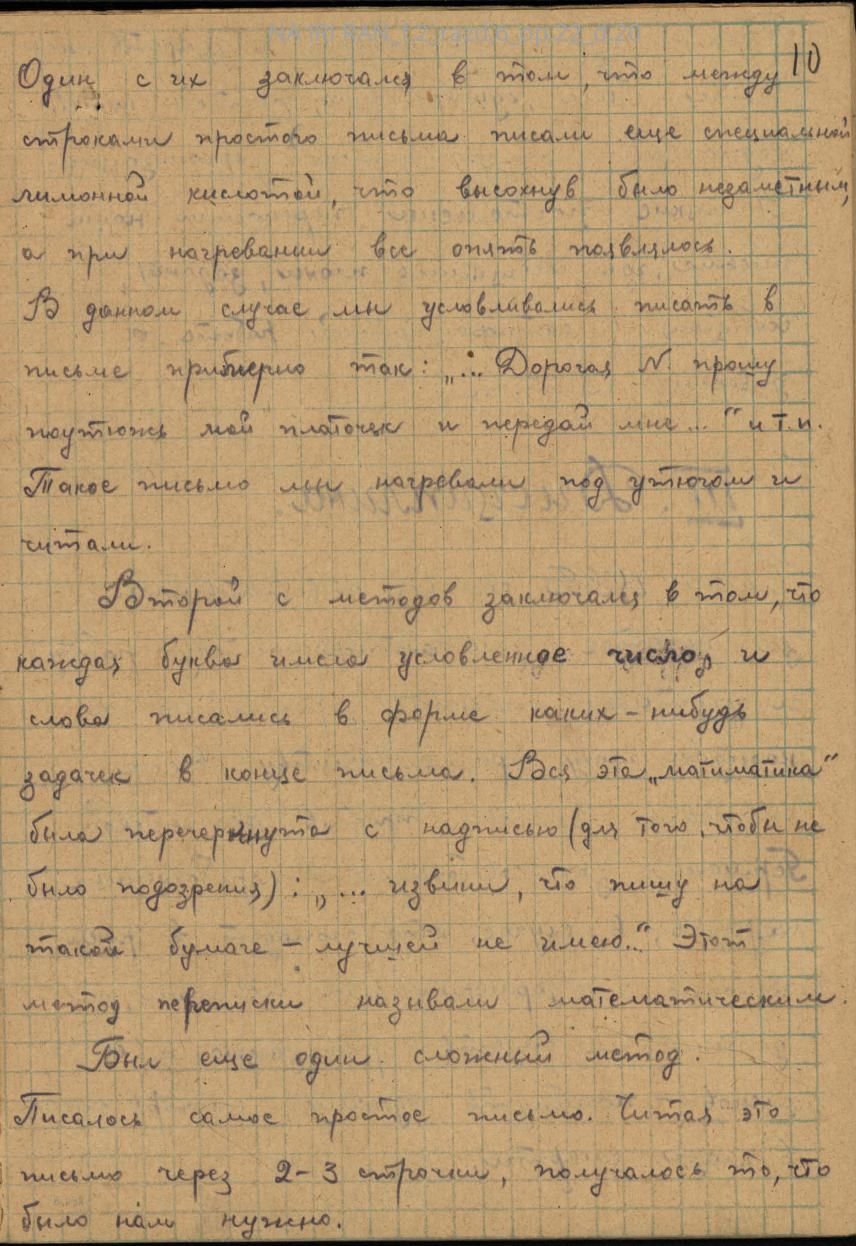 10
Один с их заключался в том, что между
строками простого письма писали еще специальной
лимонной кислотой, что высохнув было незаметным,
а при нагревании все опять появлялось.
В данном случае мы условливались писать в
письме примерно так: „... Дорогая N. прошу
поутюжь мой платочек и передай мне..." и т.п.
Такое письмо мы нагревали под утюгом и
читали.
Второй с методов заключался в том, что
каждая буква имела условленное число, и
слова писались в форме каких-нибудь
задачек в конце письма. Вся эта „матиматика"
была перечеркнута с надписью (для того, чтобы не
было подозрения): „... извини, что пишу на
такой бумаге – лучшей не имею.." Этот
метод переписки называли математическим.
Был еще один сложный метод.
Писалось самое простое письмо. Читая это
письмо через 2-3 строчки, получалось то, что
было нам нужно.